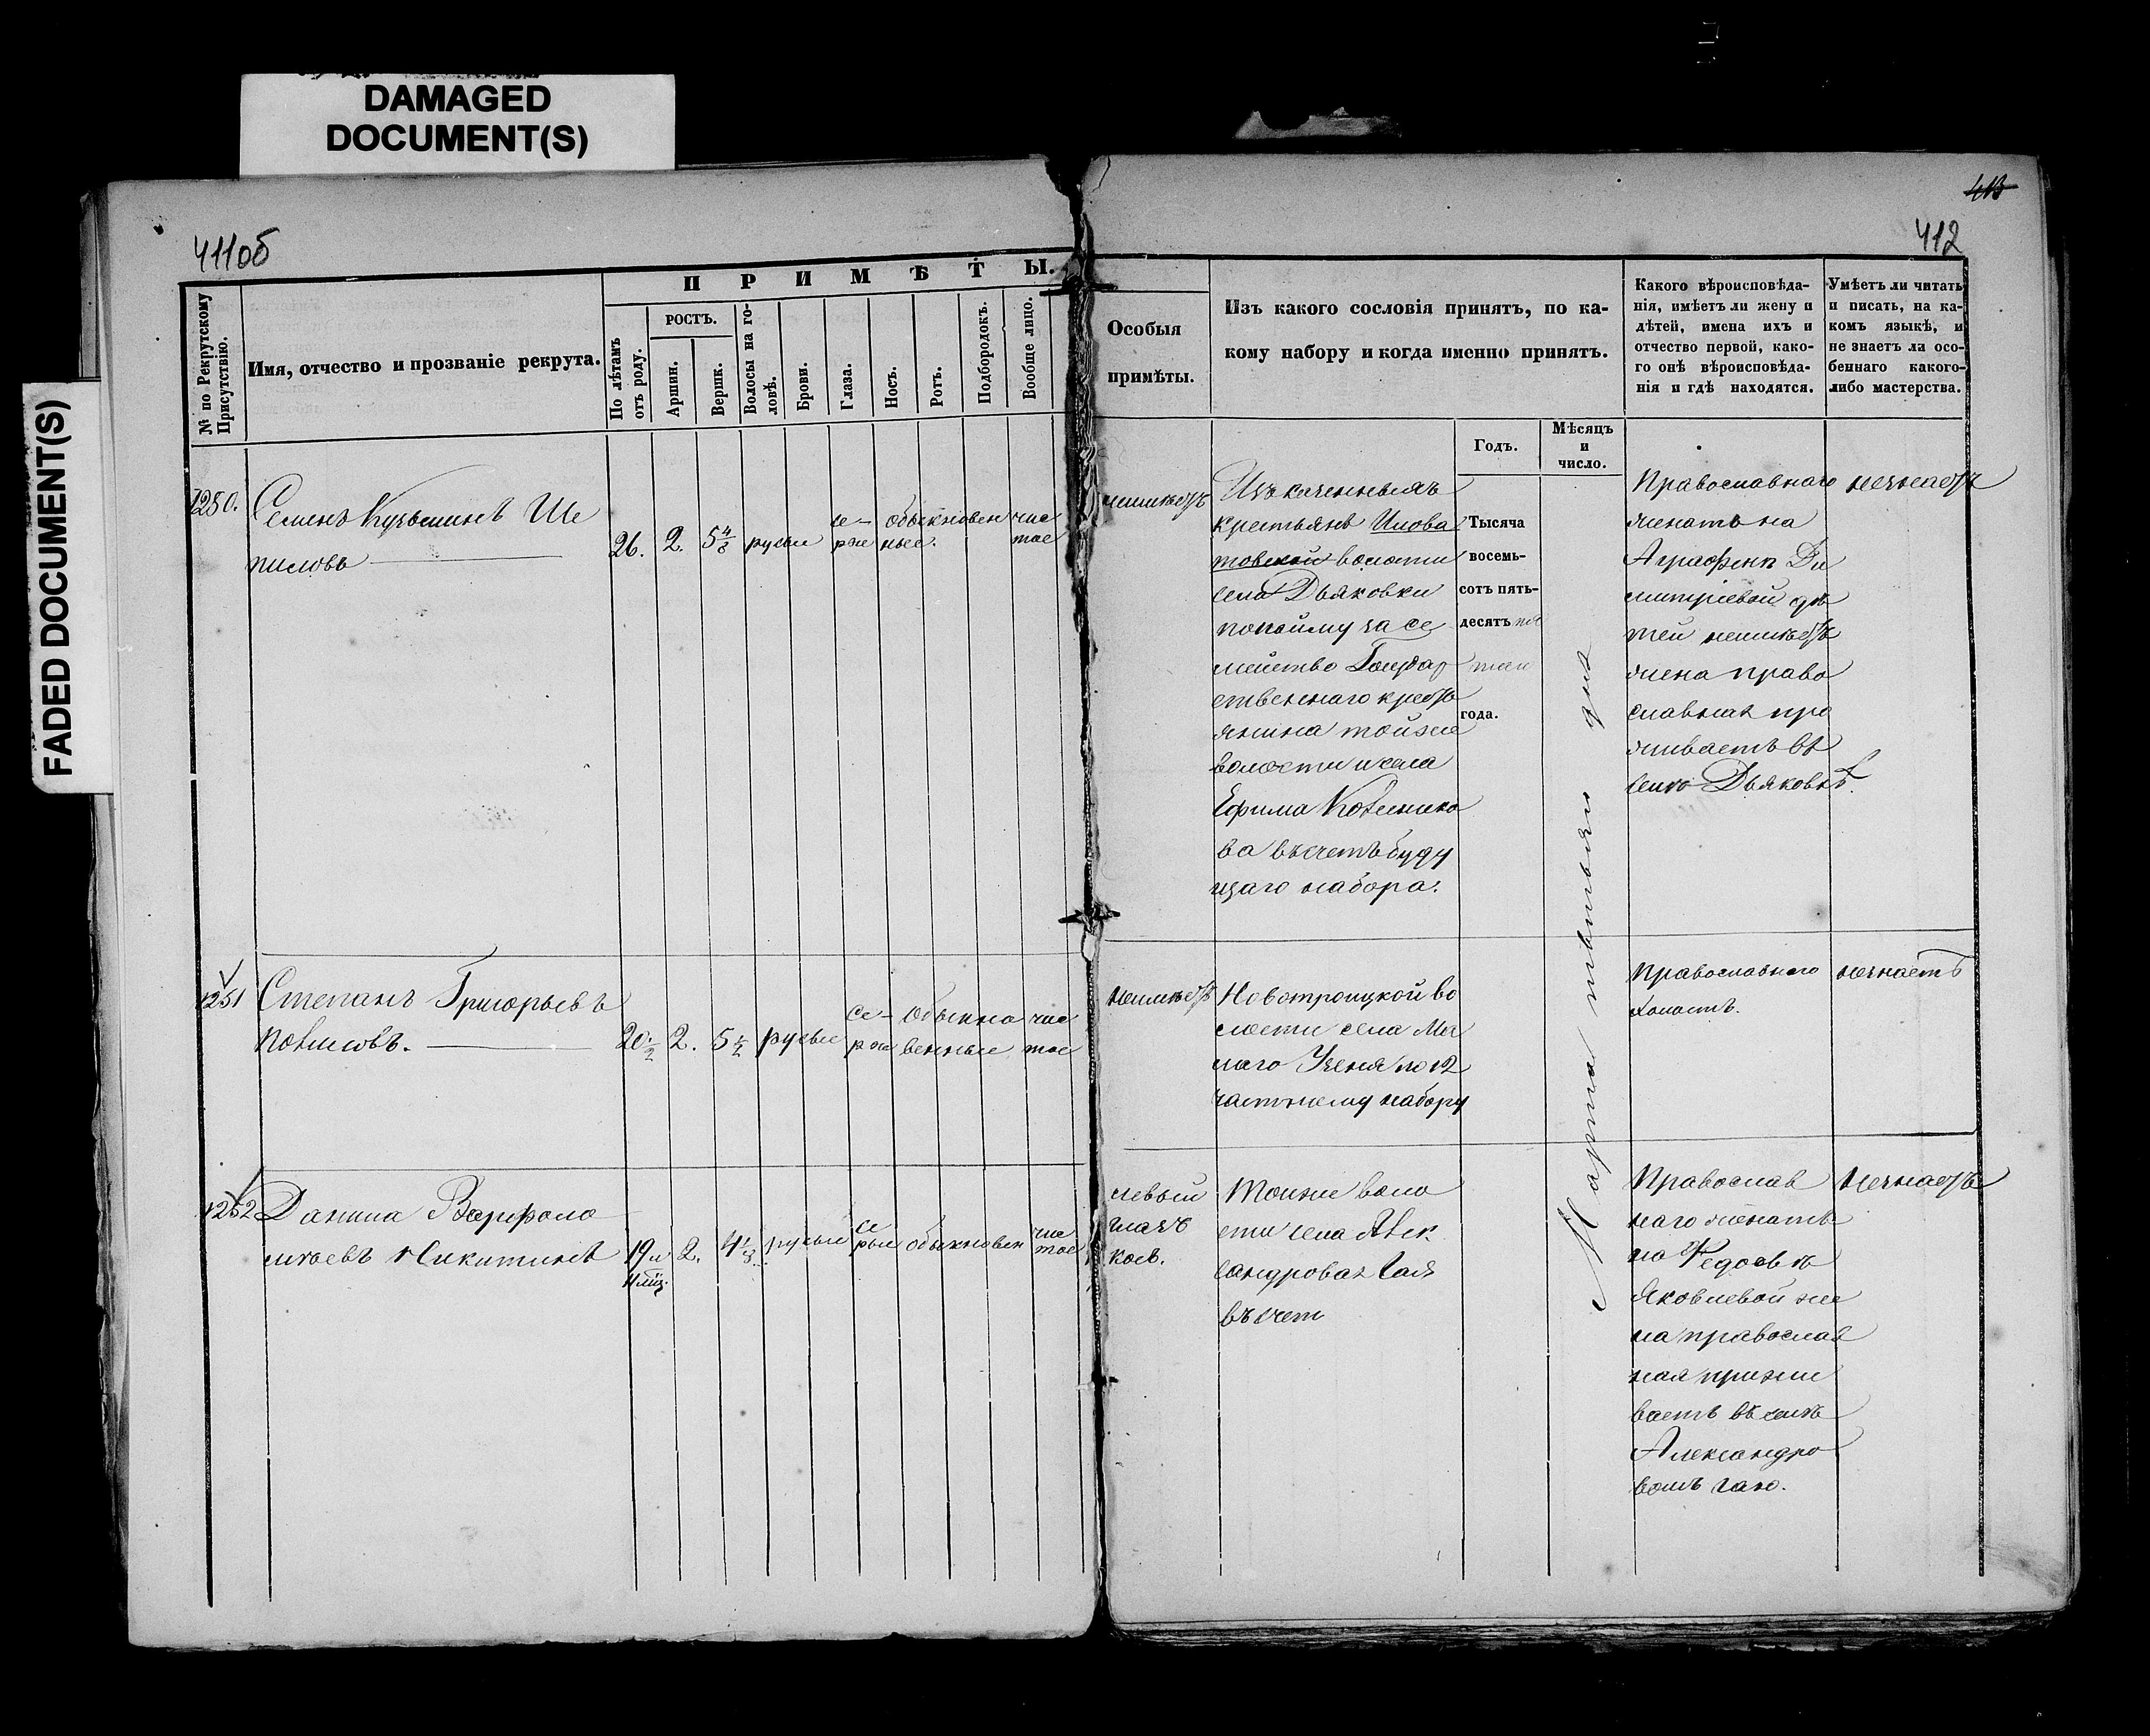 DAMAGED
DOCUMENT(S)
FADED DOCUMENT(S)
411об
413
412
№ по Рекрутскому
Присутствію.
Имя, отчество и прозваніе рекрута.
ПРИМѢТЫ.
По лѣтамъ
отъ роду.
РОСТЪ.
Аршин.
Вершк.
Волосы на го-
ловѣ.
Брови.
Глаза.
Носъ.
Ротъ.
Подбородокъ.
Вообще лицо.
Особыя
примѣты.
Изъ какого сословія принятъ, по ка-
кому набору и когда именно принятъ.
Какого вѣроисповѣда-
нія, имѣетъ ли жену и
дѣтей, имена ихъ и
отчество первой, како-
го онѣ вѣроисповѣда-
нія и гдѣ находятся.
Умѣетъ ли читать
и писать, на ка-
комъ языкѣ, и
не знаетъ ли осо-
беннаго какого-
либо мастерства.
Годъ.
Мѣсяцъ
и
число.
1250.
Семенъ Кузьминъ Ше
пиловъ
26.
2.
5 4/8
русые
се-
рые
обыкновен
ные.
чис
тое
неимѣетъ
Изъ казенныхъ
крестьянъ Илова
товской волости
села Дьяковки
понайму за се
мейство Государ
ственнаго кресть
янина тойже
волости и села
Ефима
ва въ счетъ буду
щаго набора.
Тысяча
восемь-
сотъ пять-
десятъ
года.
Марта пятаго дня
Православнаго
женатъ на
Аграфенѣ Ди
митріевой дѣ
тей неимѣетъ
жена право
славная про
живаетъ въ
селѣ Дьяковкѣ.
незнаетъ
1251
Степанъ Григорьевъ
20 1/2
2.
5 1/2
русые
се-
рые
обыкно
венные
чис
тое
неимѣетъ
Новотроицкой во
лости села Ма
лаго Узеня по 12
частному набору
Православнаго
холостъ.
незнаетъ
1252
Данила Варфоло
мѣевъ Никитинъ
19 и
2.
4 1/8
русые
се
рые
обыкновен
чис
тое
левый
глазъ
кос.
Тойже воло
сти села Алек
сандрова Гая
въ счет
Православ
наго женатъ
на Федосьѣ
Яковлевой же
на православ
ная прожи
ваетъ въ селѣ
Александро
вомъ гаю.
незнаетъ